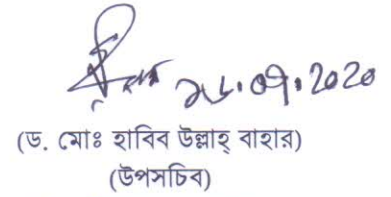 ২৮.০৭.2020
(ড. মোঃ হাবিব উল্লাহ্ বাহার)
(উপসচিব)